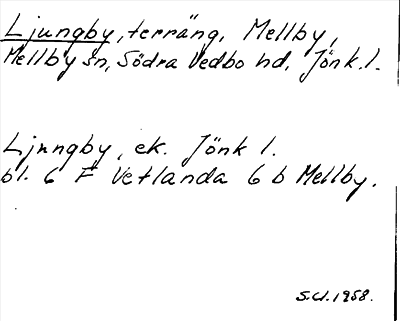 Ljungby, terräng, Mellby,
Mellby sn, Södra Vedbo hd, Jönk.l.
Ljungby, ek. Jönk l.
bl. 6 F Vetlanda 6 b Mellby.
S.U. 1958.